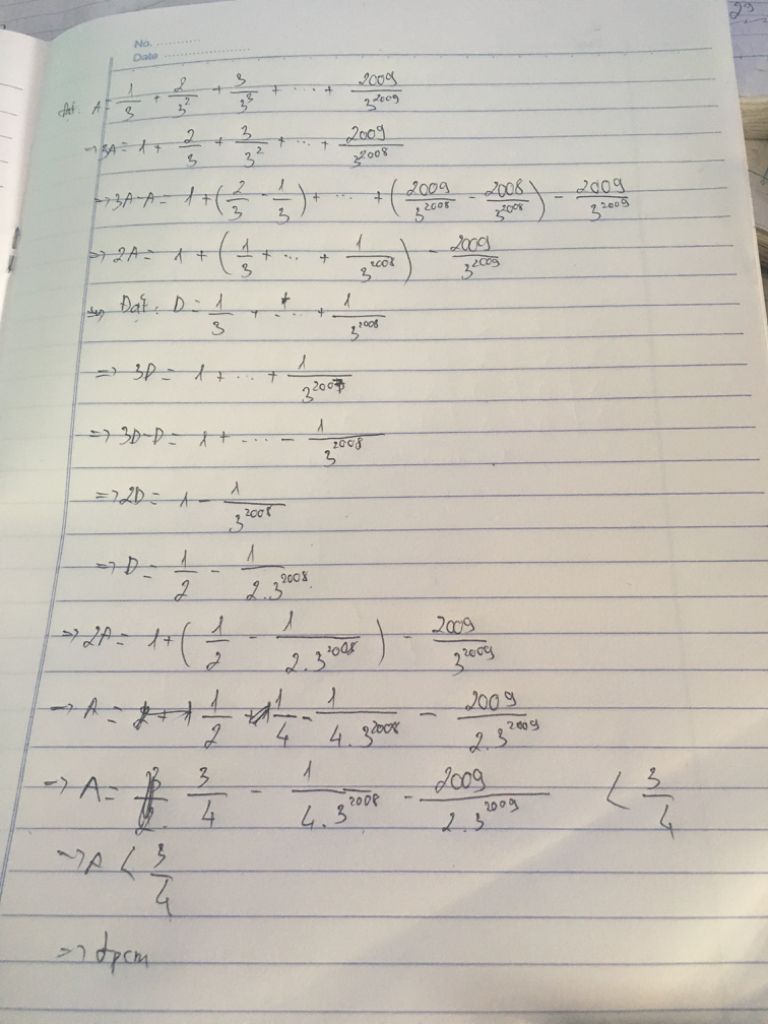 No. ...........
Date ..........................
29
Đặt: A = 1/3 + 2/3^2 + 3/3^3 + ... + 2009/3^2009
→ 3A = 1 + 2/3 + 3/3^2 + ... + 2009/3^2008
=> 3A-A = 1 + (2/3 - 1/3) + ... + (2009/3^2008 - 2008/3^2008) - 2009/3^2009
=> 2A = 1 + (1/3 + ... + 1/3^2008) - 2009/3^2009
=> Đặt: D = 1/3 + ... + 1/3^2008
=> 3D = 1 + ... + 1/3^2007
=> 3D-D = 1 + ... - 1/3^2008
=> 2D = 1 - 1/3^2008
=> D = 1/2 - 1/2.3^2008
=> 2A = 1 + (1/2 - 1/2.3^2008) - 2009/3^2009
→ A = 1/2 + 1/4 - 1/4.3^2008 - 2009/2.3^2009
→ A = 3/4 - 1/4.3^2008 - 2009/2.3^2009 < 3/4
→ A < 3/4
=> đpcm